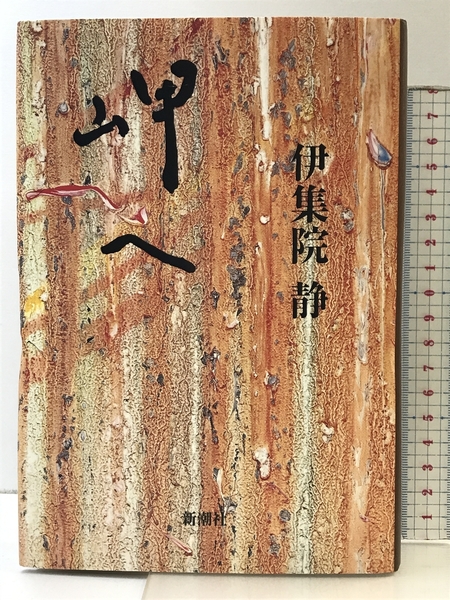 岬へ
伊集院 静
新潮社
7
6
5
4
3
2
1
0
9
8
7
6
5
4
3
2
1